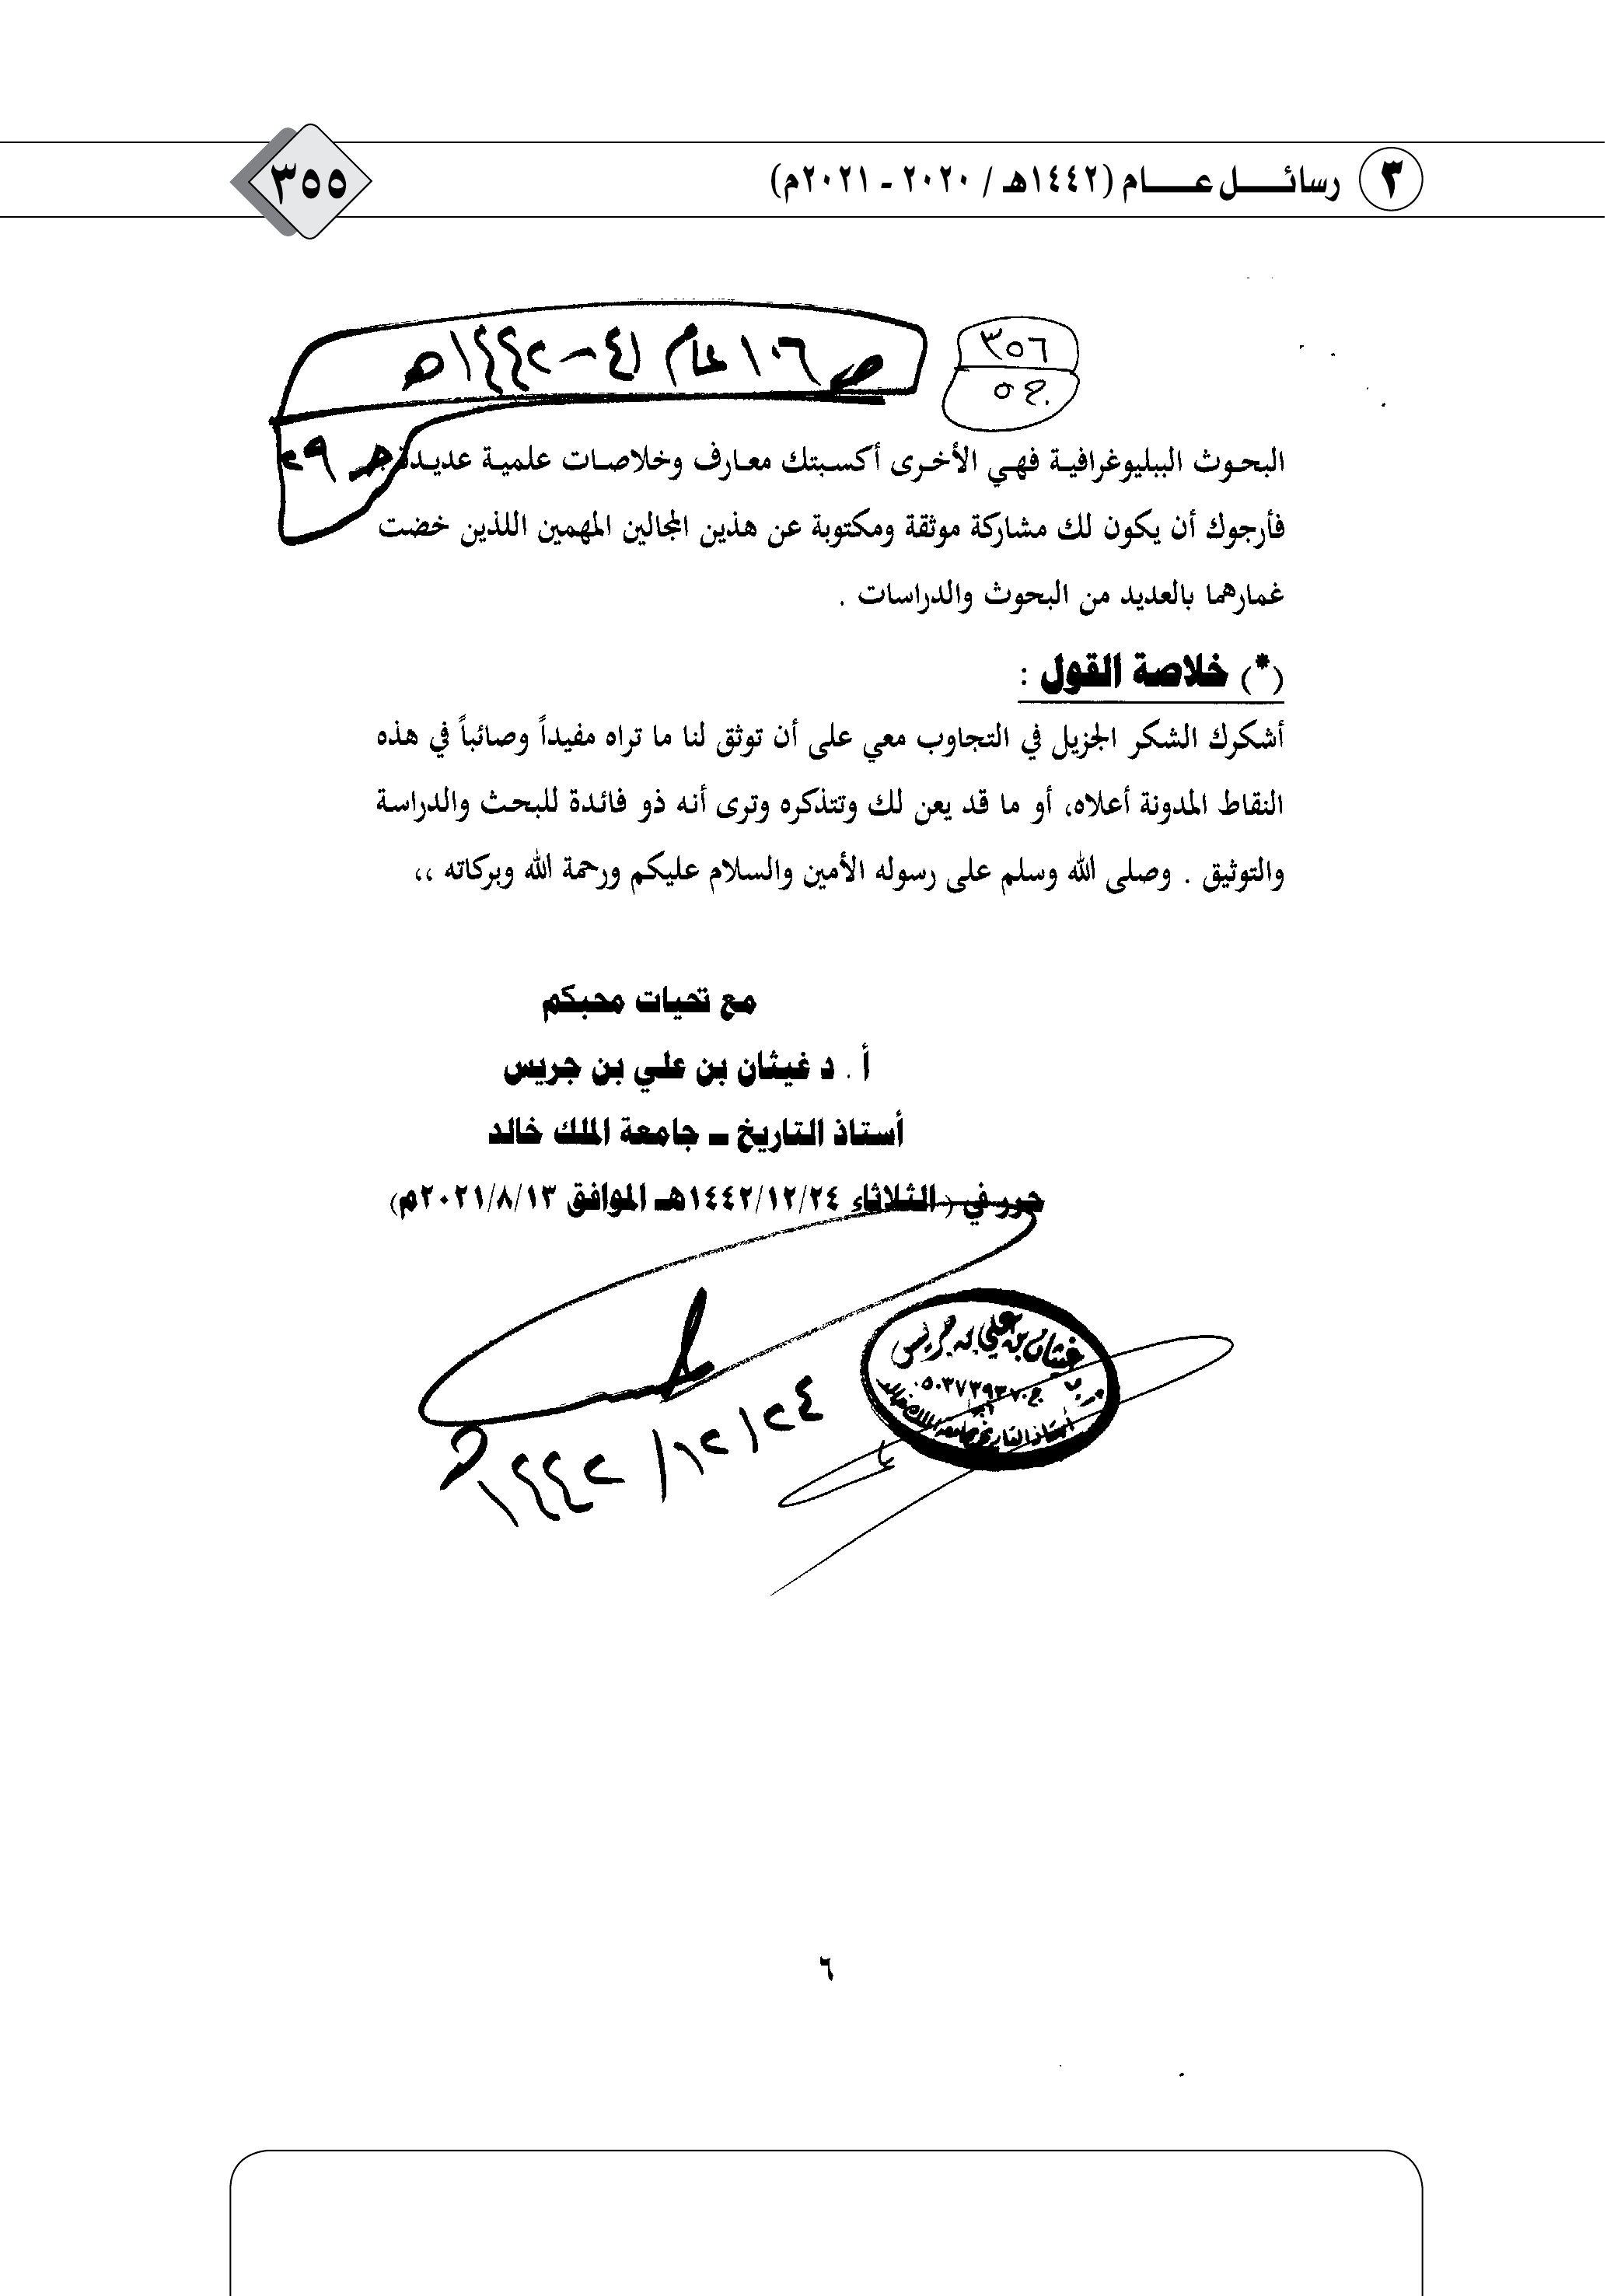 ٣ رسائل عام (١٤٤٢هـ / ٢٠٢٠ - ٢٠٢١م) ٣٥٥
٣٥٦
ج٥
ص١٠٦ عام ٤١-١٤٤٢هـ
البحوث الببليوغرافية فهي الأخرى أكسبتك معارف وخلاصات علمية عديدة
فأرجوك أن يكون لك مشاركة موثقة ومكتوبة عن هذين المجالين المهمين اللذين خضت
غمارهما بالعديد من البحوث والدراسات .
(*) خلاصة القول :
أشكرك الشكر الجزيل في التجاوب معي على أن توثق لنا ما تراه مفيداً وصائباً في هذه
النقاط المدونة أعلاه، أو ما قد يعن لك وتتذكره وترى أنه ذو فائدة للبحث والدراسة
والتوثيق . وصلى الله وسلم على رسوله الأمين والسلام عليكم ورحمة الله وبركاته ،،
مع تحيات محبكم
أ . د غيثان بن علي بن جريس
أستاذ التاريخ ــ جامعة الملك خالد
حرر في ( الثلاثاء ١٤٤٢/١٢/٢٤هـ الموافق ٢٠٢١/٨/١٣م)
غيثان بن علي بن جريس
أستاذ التاريخ بجامعة الملك خالد
٢٤/١٢/١٤٤٢هـ
٦